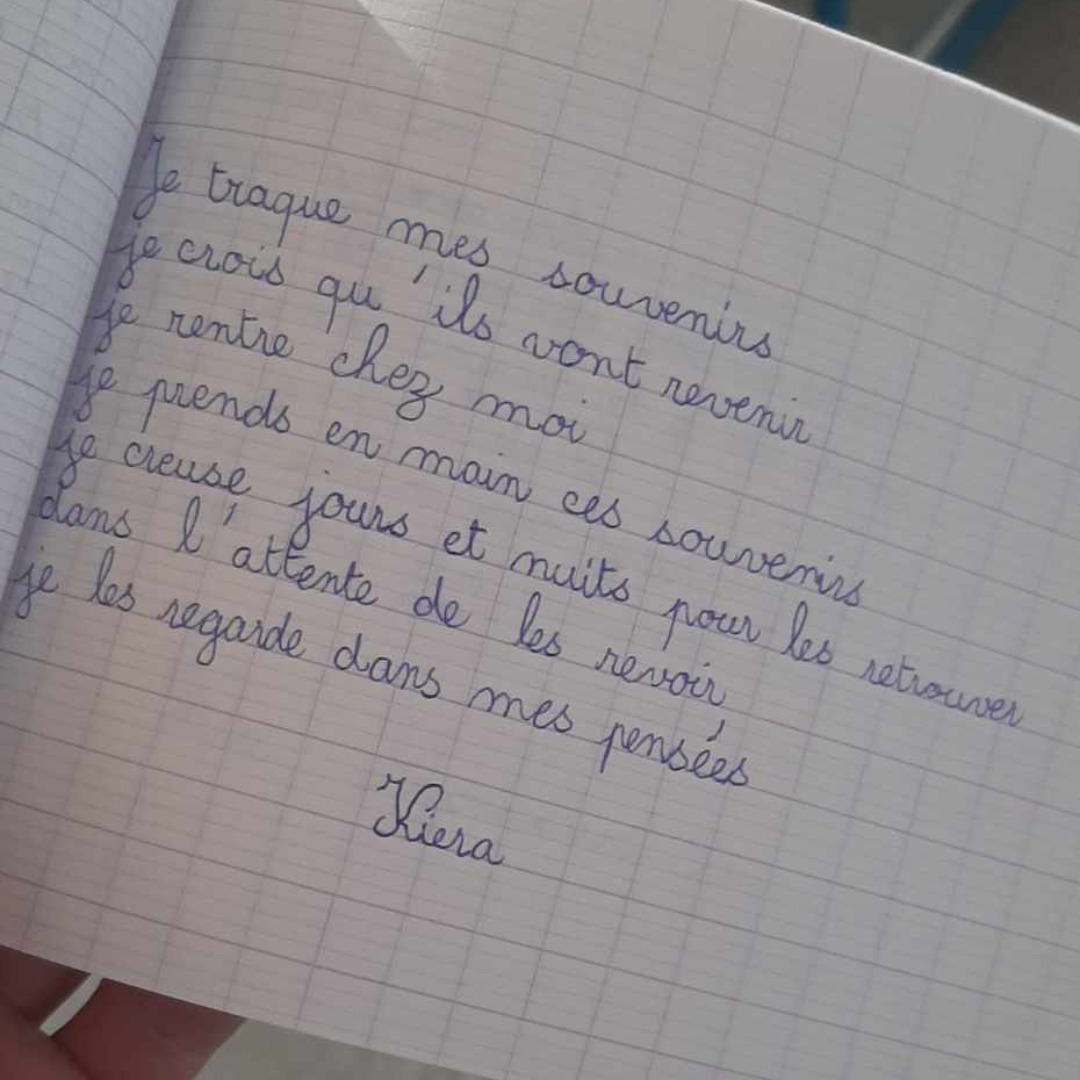 Je traque mes souvenirs
je crois qu'ils vont revenir
je rentre chez moi
je prends en main ces souvenirs
je creuse jours et nuits pour les retrouver
dans l'attente de les revoir
je les regarde dans mes pensées
Kiera